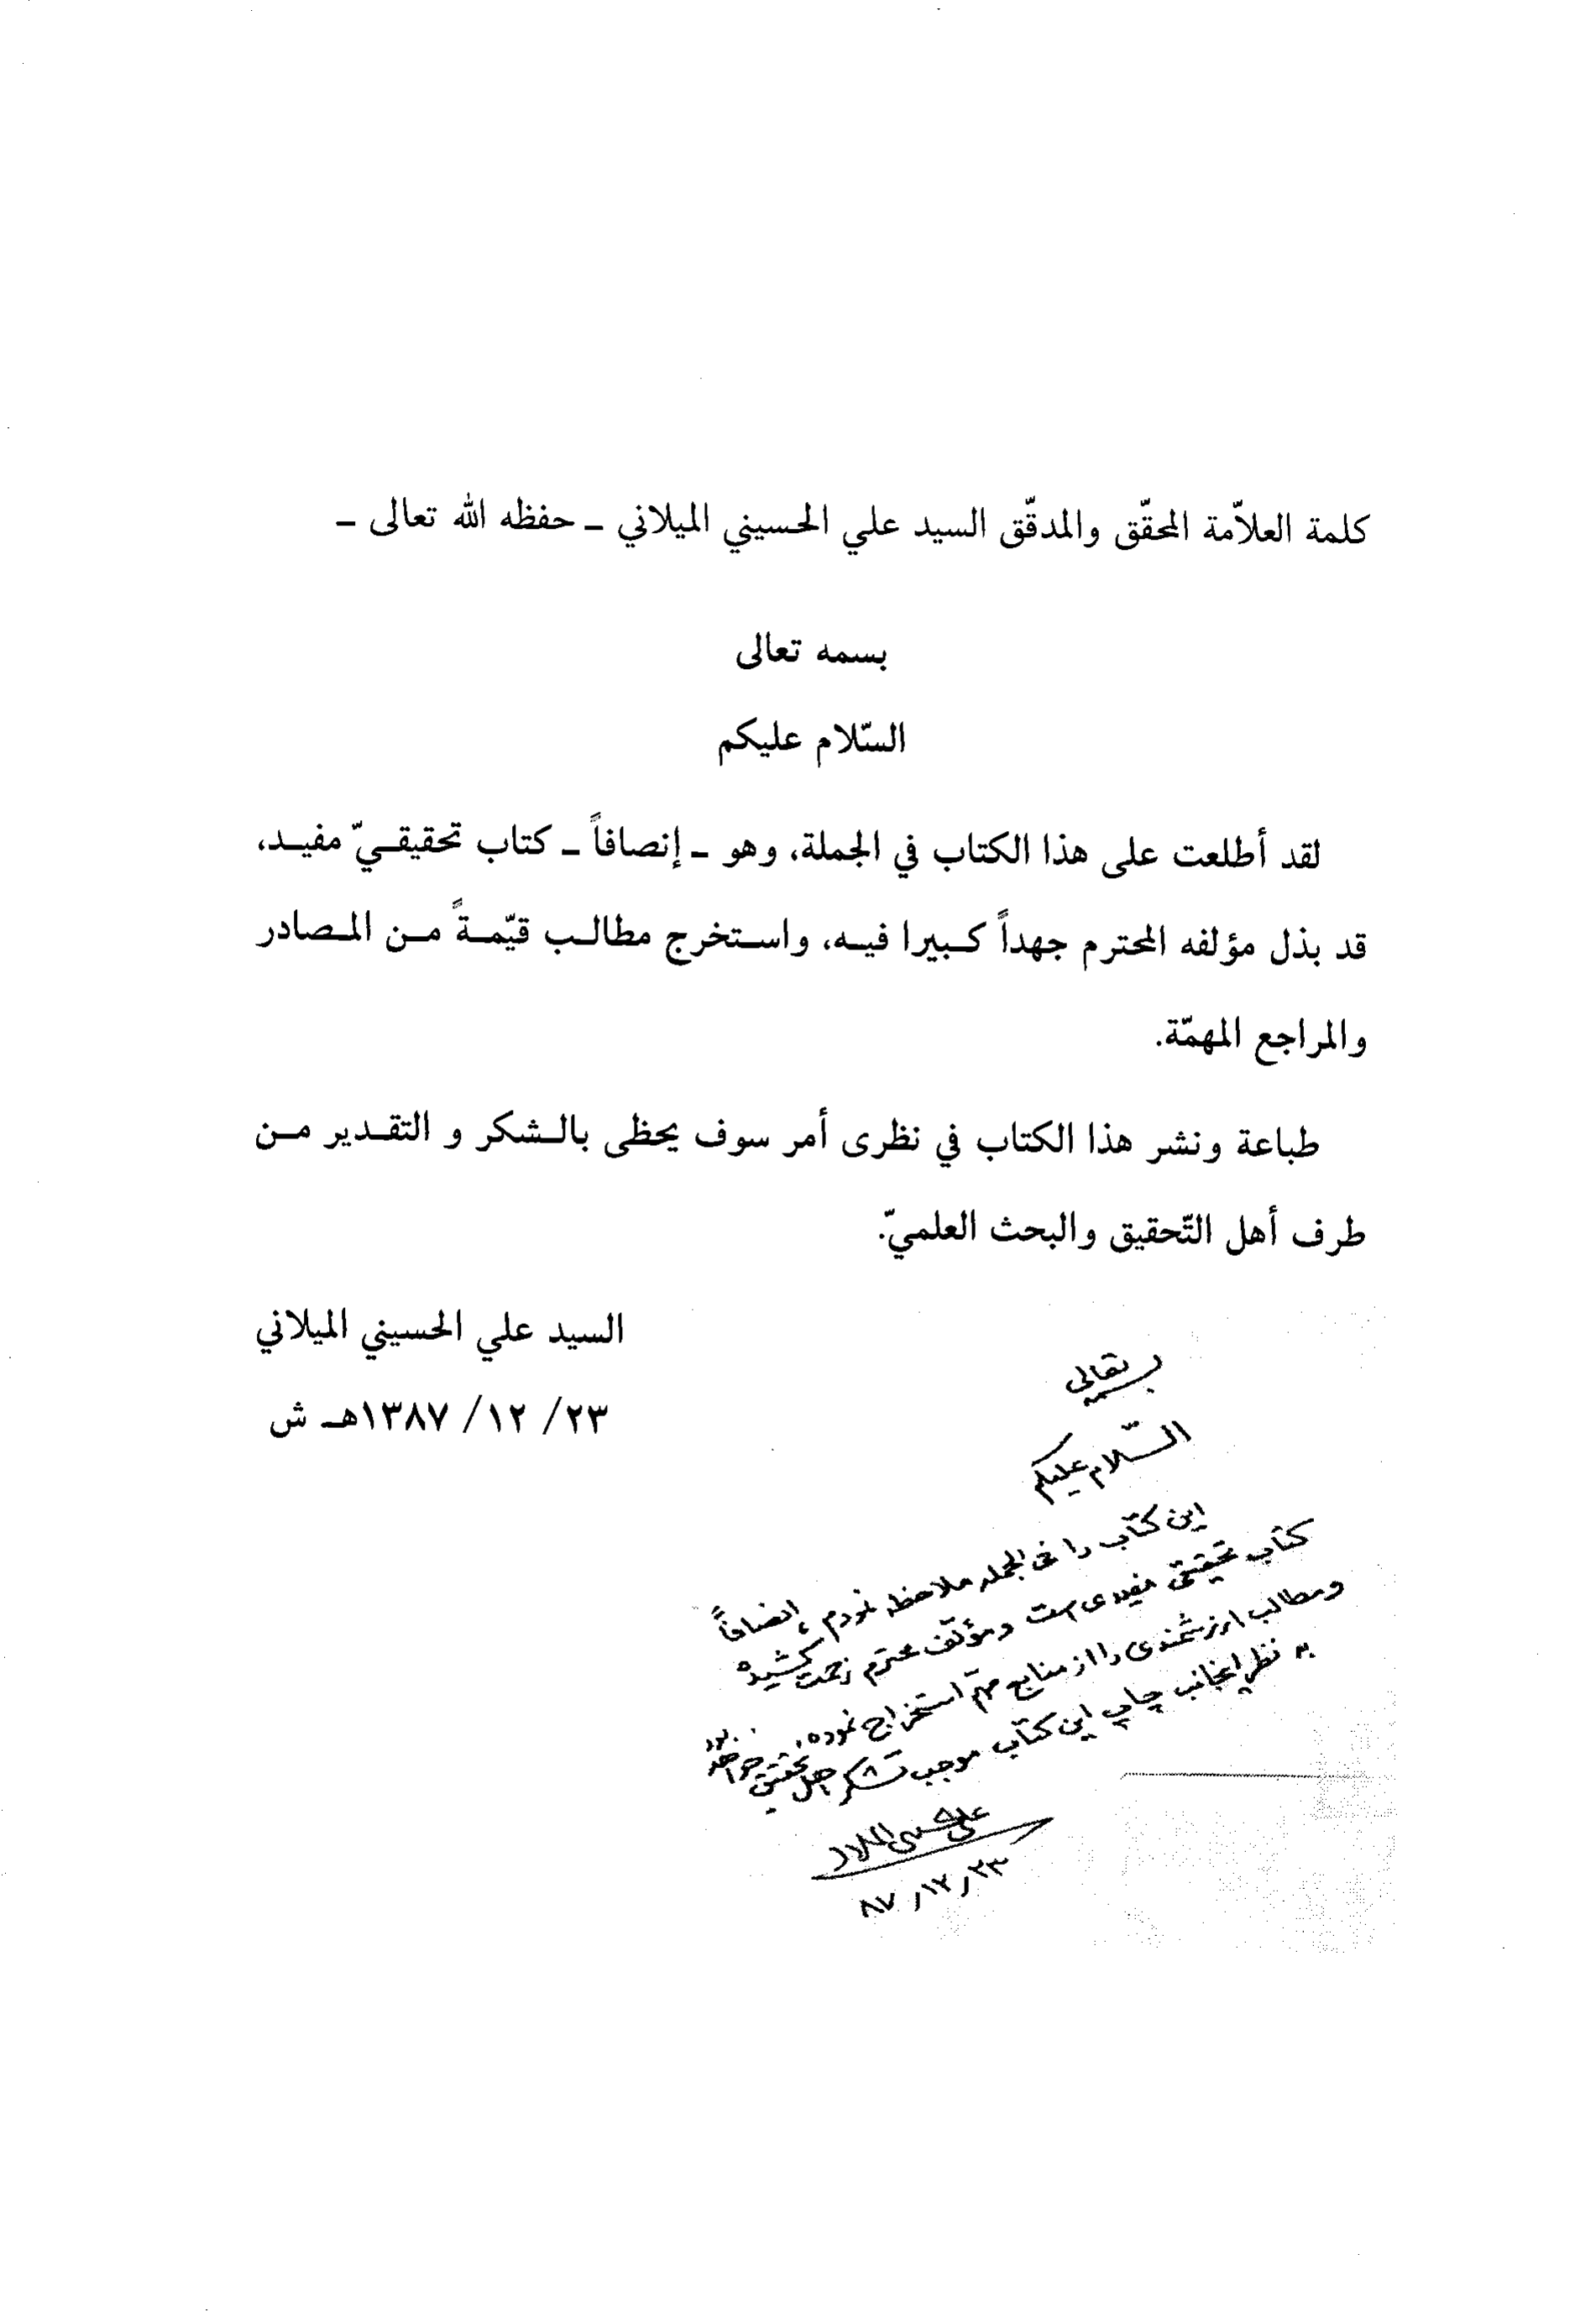 كلمة العلاّمة المحقّق والمدقّق السيد علي الحسيني الميلاني ـ حفظه الله تعالى ـ
بسمه تعالى
السّلام عليكم
لقد أطلعت على هذا الكتاب في الجملة، وهو ـ إنصافاً ـ كتاب تحقيقـيّ مفيـد،
قد بذل مؤلفه المحترم جهداً كـبيرا فيـه، واسـتخرج مطالـب قيّمـةً مـن المـصادر
والمراجع المهمّة.
طباعة ونشر هذا الكتاب في نظرى أمر سوف يحظى بالـشكر و التقـدير مـن
طرف أهل التّحقيق والبحث العلميّ.
السيد علي الحسيني الميلاني
٢٣/ ١٢/ ١٣٨٧هـ ش
بسمه تعالى
السّلام عليكم
این کتاب را فی الجمله ملاحظه نمودم، انصافاً
کتاب تحقیقی مفیدی است و مؤلّف محترم زحمت کشیده
و مطالب ارزشمندی را از منابع مهمّ استخراج نموده،
به نظر اینجانب چاپ این کتاب موجب تشکر اهل تحقیق خواهد بود
علی الحسینی المیلانی
٨٧/١٢/٢٣